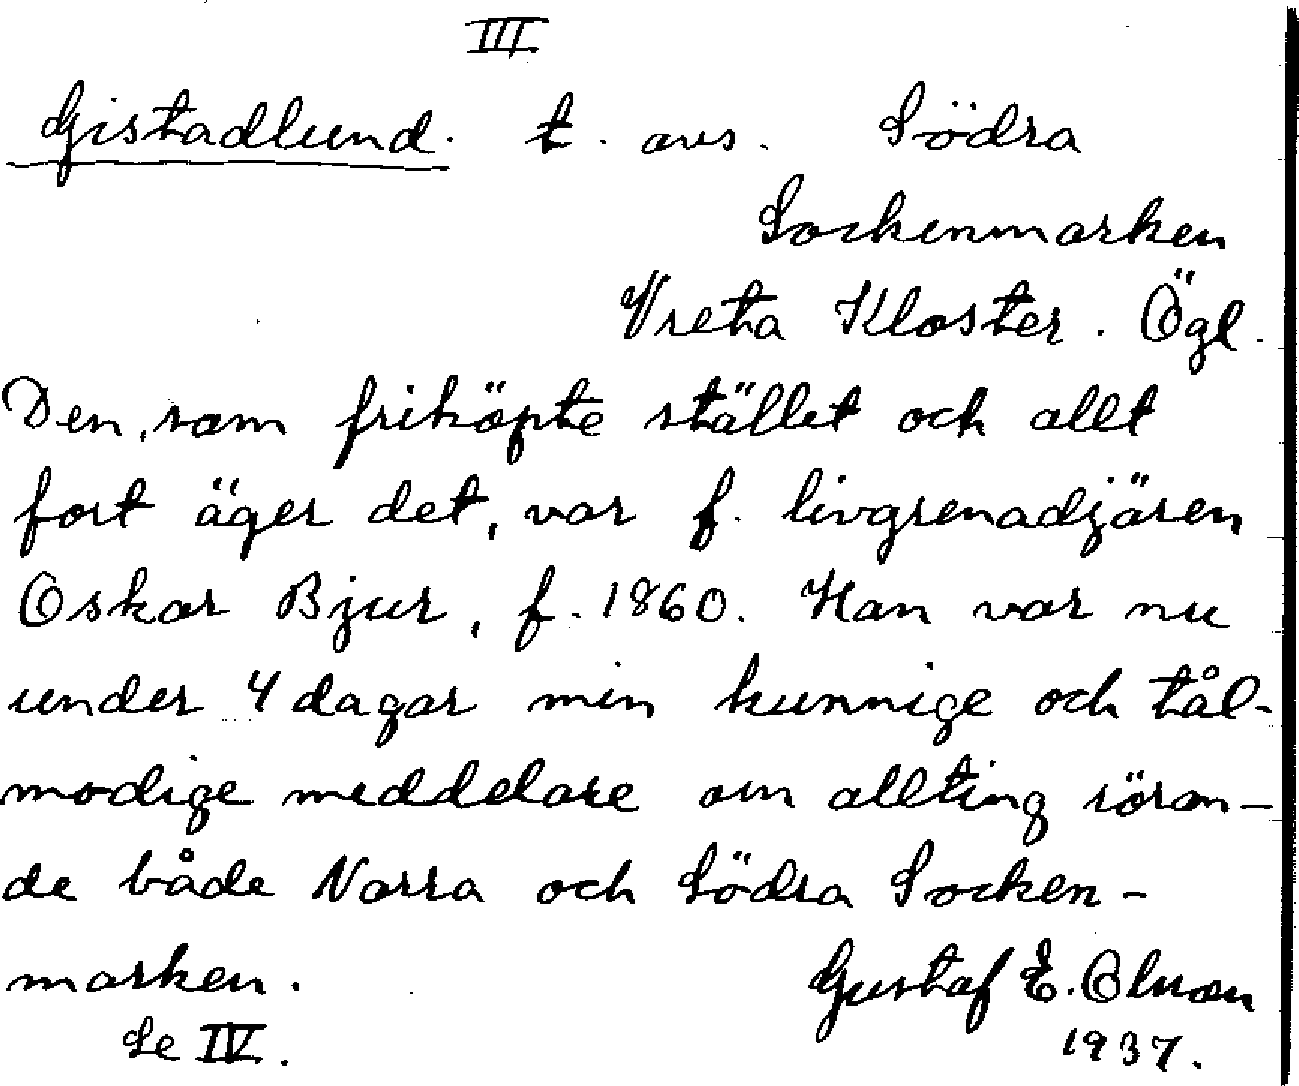 III.
Gistadlund. t. avs. Södra
Sockenmarken
Vreta Kloster. Ögl.
Den, som friköpte stället och allt
fort äger det, var f. livgrenadjären
Oskar Bjur, f. 1860. Han var nu
under 4 dagar min kunnige och tål-
modige meddelare om allting röran-
de både Norra och Södra Socken-
marken. Gustaf E. Olsson
Se IV. 1937.